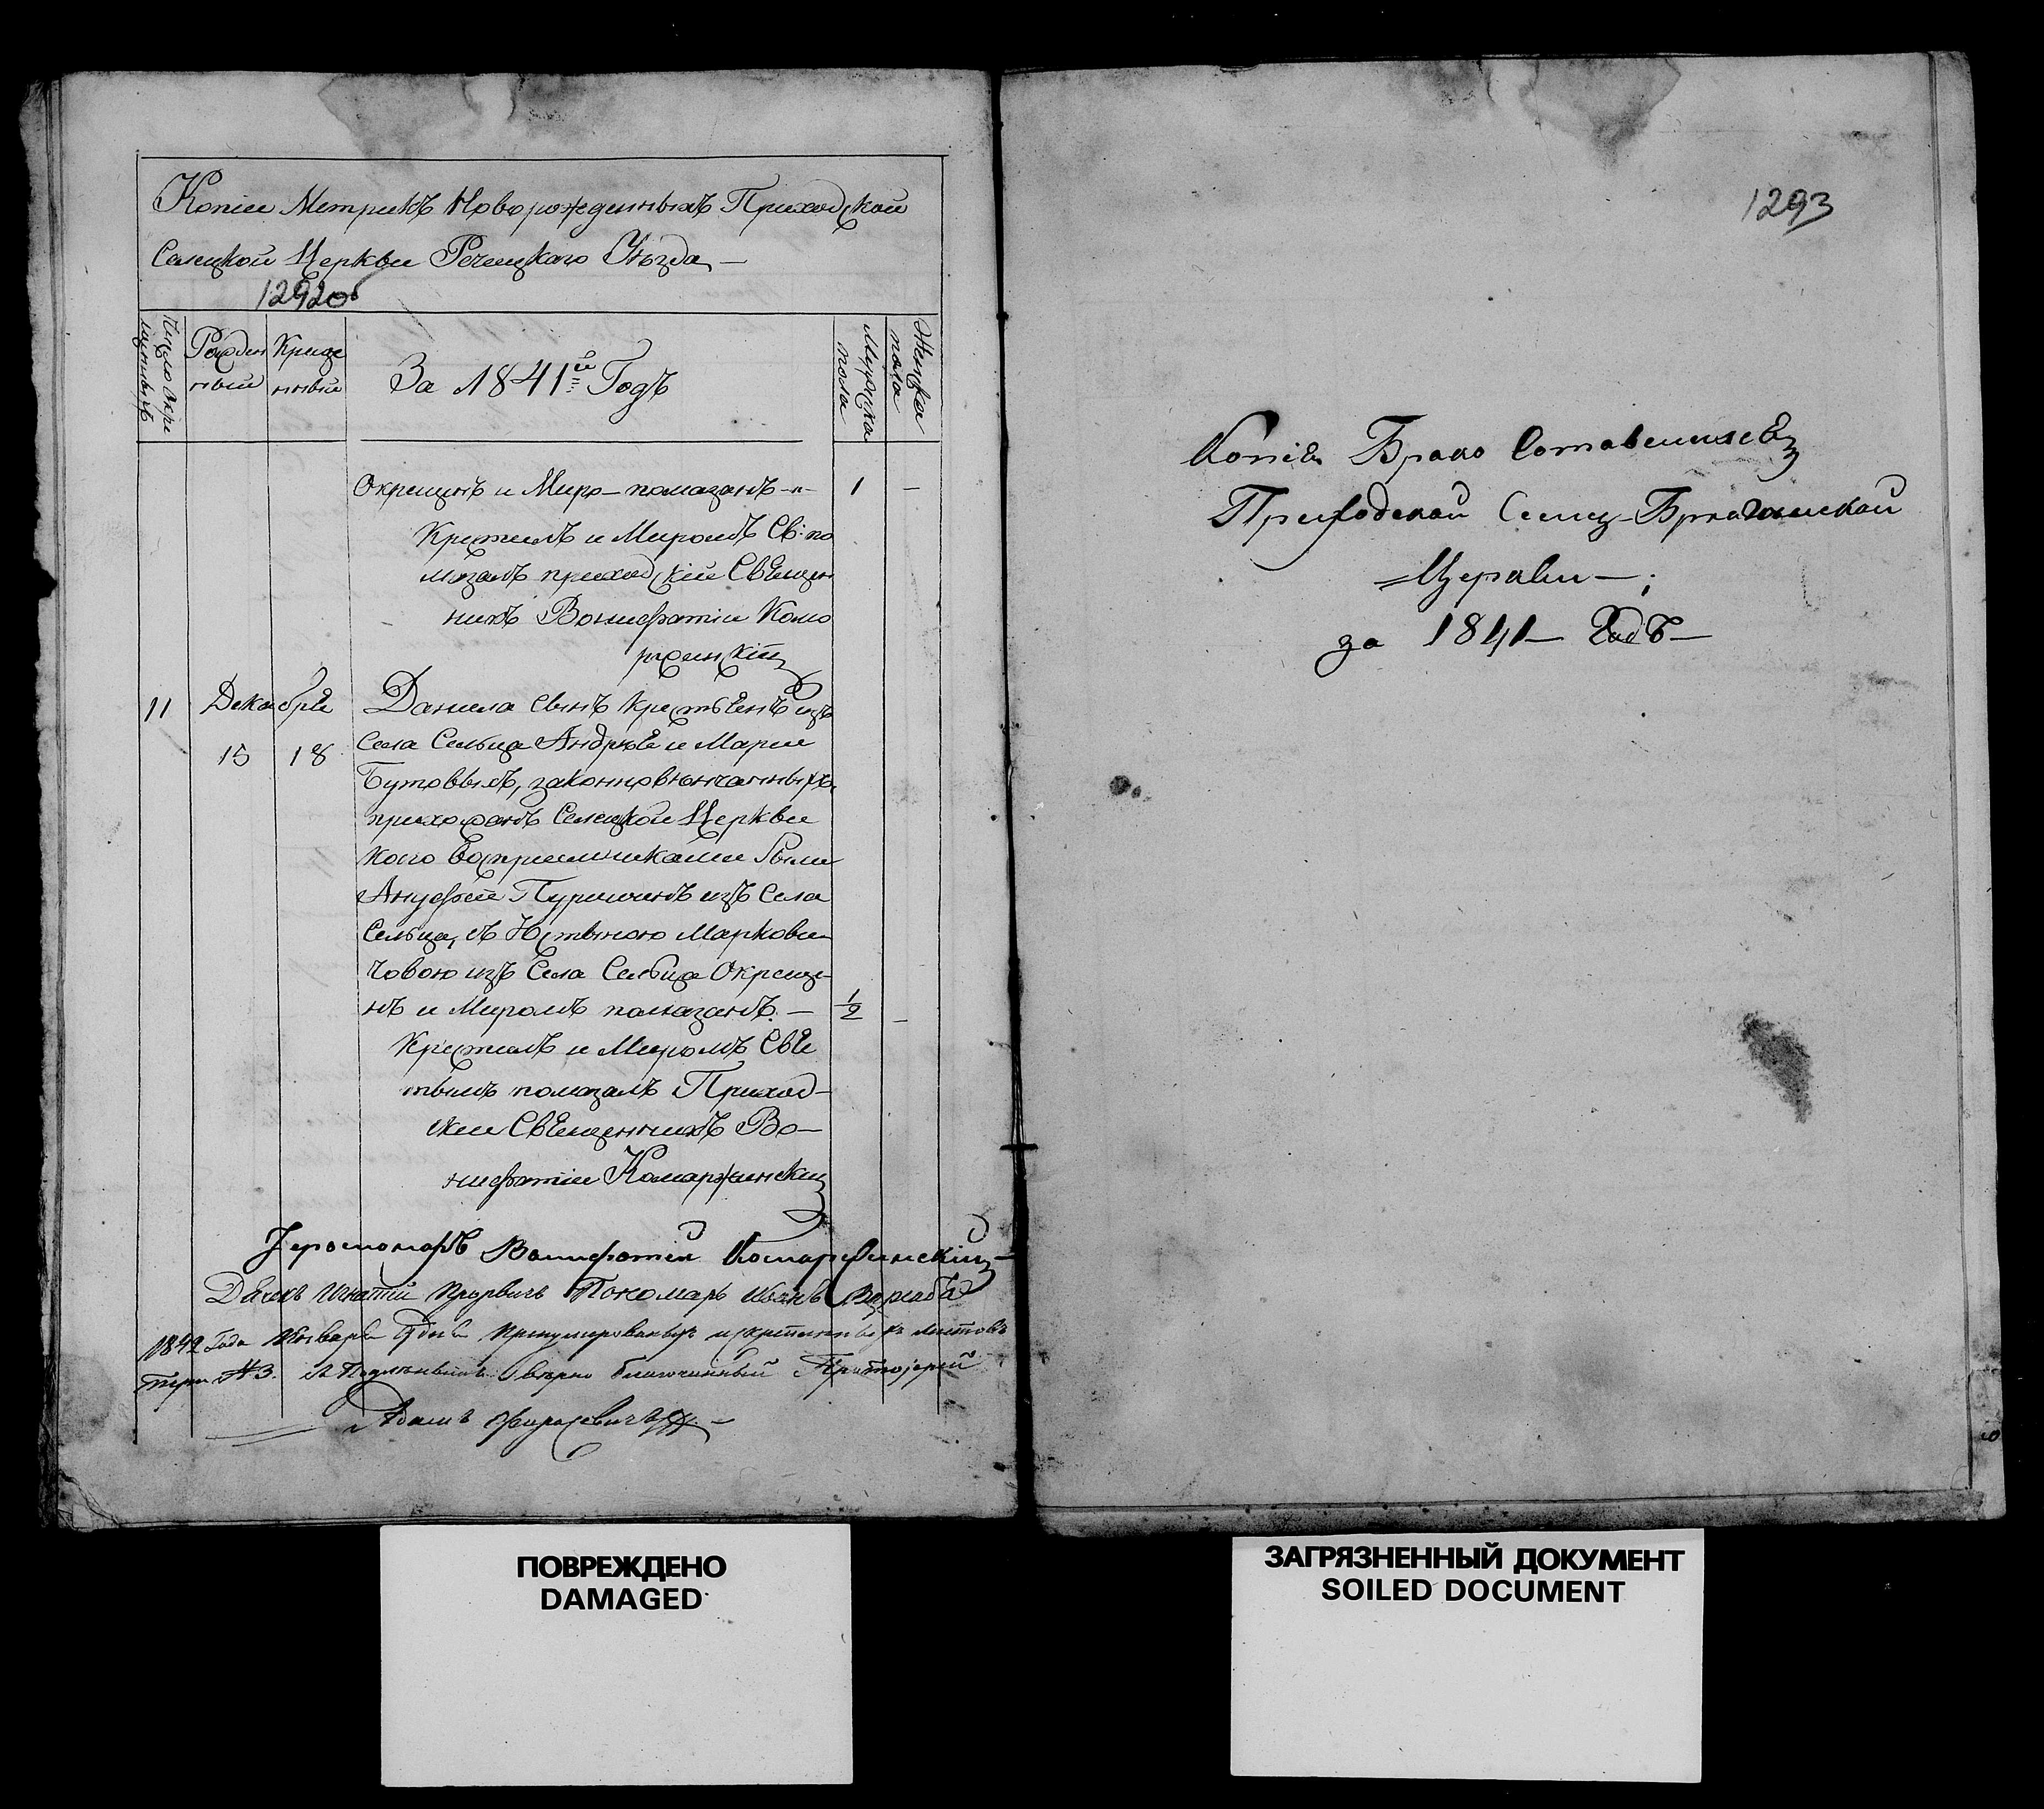 Копіи Метрикъ Новорожденныхъ Приходской
Селецкой Церкви Речецкаго Уѣзда
1292об
Число Кре
щенныхъ
Рожден
ный
Креще
нный
За 1841й Годъ
Мужска
пола
Женска
пола
Окрещенъ и Миро-помазанъ
1 —
Крестилъ и Миромъ Св: по
мазалъ приход скій Свещен
никъ Вонифатіи Комо
ржинскій
11 Декабрѣ Данила сынъ крестьенъ изъ
15 18 Села Сельца Андрѣе и Марии
Бутовыхъ, законновѣнчанныхъ
прихожанъ Селецкой Церкви
коего воспріемниками были
Ануфрей изъ Села
Сельца, съ Марковы
човою изъ Села Сельца Окреще
нъ и Миромъ помазанъ. —
1/2 —
Крестилъ и Миромъ Све
тымъ помазалъ Приход-
скій Свещенникъ Во-
нифатіи Комаржинский
Іеромонахъ Вонифатій Комаржинскій
Дьячекъ Игнатій Пономарь Иванъ
1842 Года Января дня
три № 3. вѣрно благочинный Протоіерей
Адамъ
1293
Копіе Брако Сотавшихсе
Приходской Селец-Брагинской
Церкви —;
за 1841 — Годъ —
ПОВРЕЖДЕНО
DAMAGED
ЗАГРЯЗНЕННЫЙ ДОКУМЕНТ
SOILED DOCUMENT